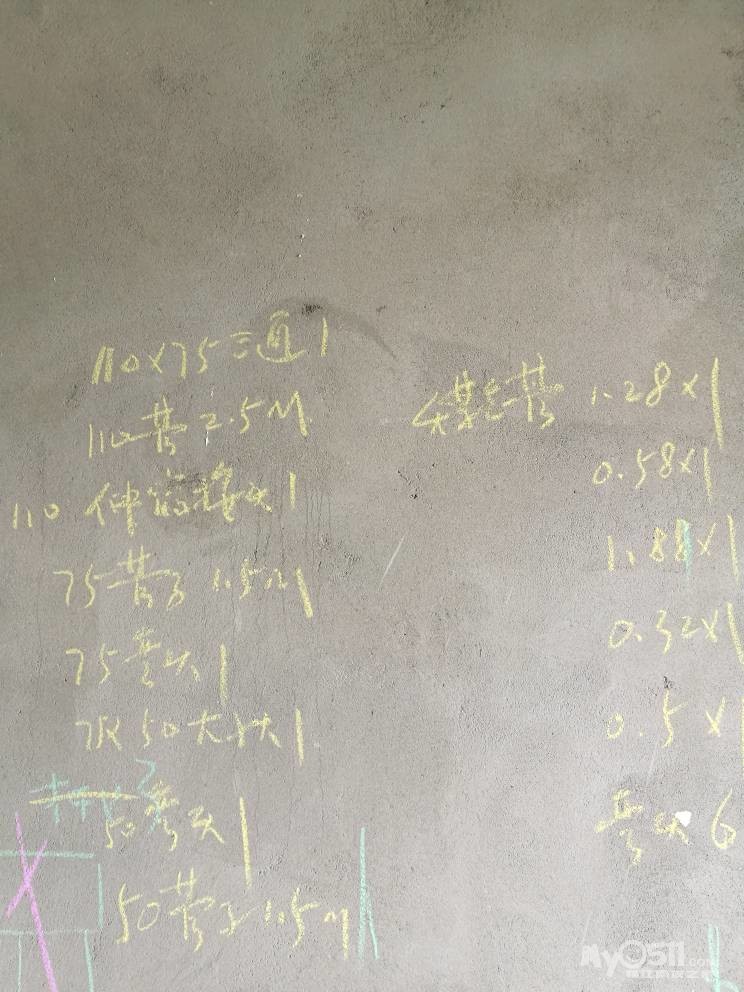 110×75三通1
110管2.5M
110伸缩接头1
75管子1.5M
75弯头1
75×50大小头1
50弯头1
50管子1.5M
煤气管 1.28×1
0.58×1
1.88×1
0.32×1
0.5×1
弯头6
My0511.com